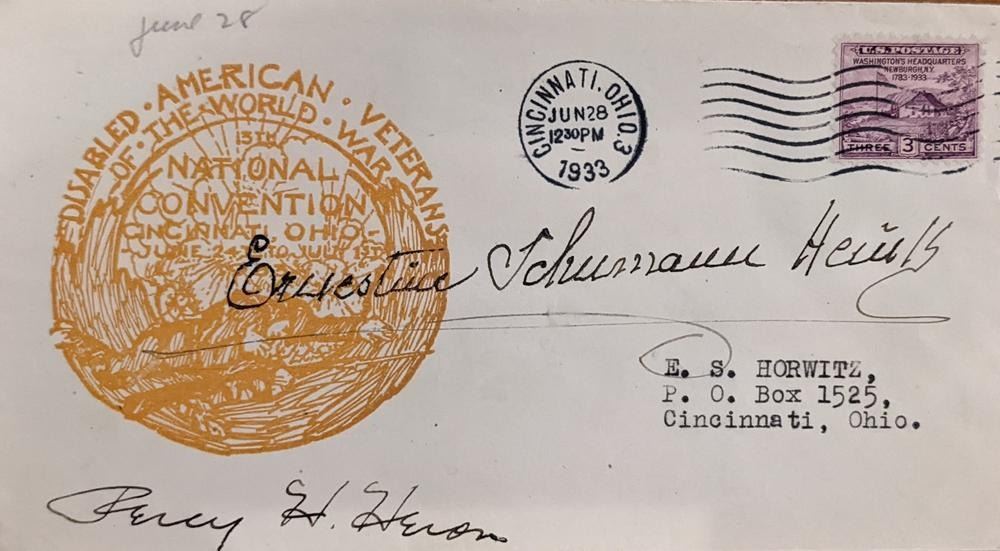 June 28
DISABLED · AMERICAN · VETERANS
· OF · THE · WORLD · WAR ·
13TH
NATIONAL
CONVENTION
CINCINNATI, OHIO -
JUNE 24 TO JULY 1ST
CINCINNATI, OHIO. 3
JUN 28
12 30 PM
1933
U.S. POSTAGE
WASHINGTON'S HEADQUARTERS
NEWBURGH, N.Y.
1783-1933
THREE 3 CENTS
Ernestine Schumann Heink
E. S. HORWITZ,
P. O. Box 1525,
Cincinnati, Ohio.
Percy H. Heron